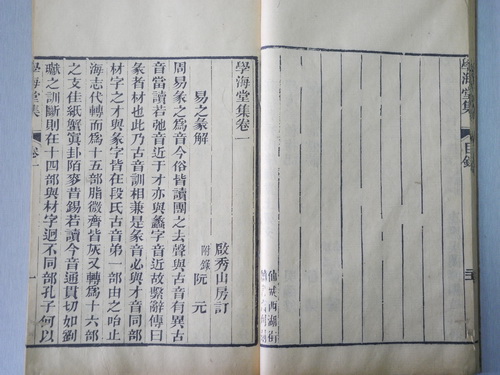 學海堂集
目錄
城西湖街
學海堂集卷一
啟秀山房訂
易之彖解
附錄 阮元
周易彖之爲音今俗皆讀團之去聲與古音有異古
音當讀若弛音近于才亦與蠡字音近故繫辭傳曰
彖者材也此乃古音訓相兼是彖音必與才音同部
材字之才與彖字皆在段氏古音弟一部由之咍止
海志代轉而爲十五部脂微齊皆灰又轉爲十六部
之支佳紙蟹寘卦陌麥昔錫若讀今音通貫切如劉
瓛之訓斷則在十四部與材字迥不同部孔子何以
學海堂集
卷一
一